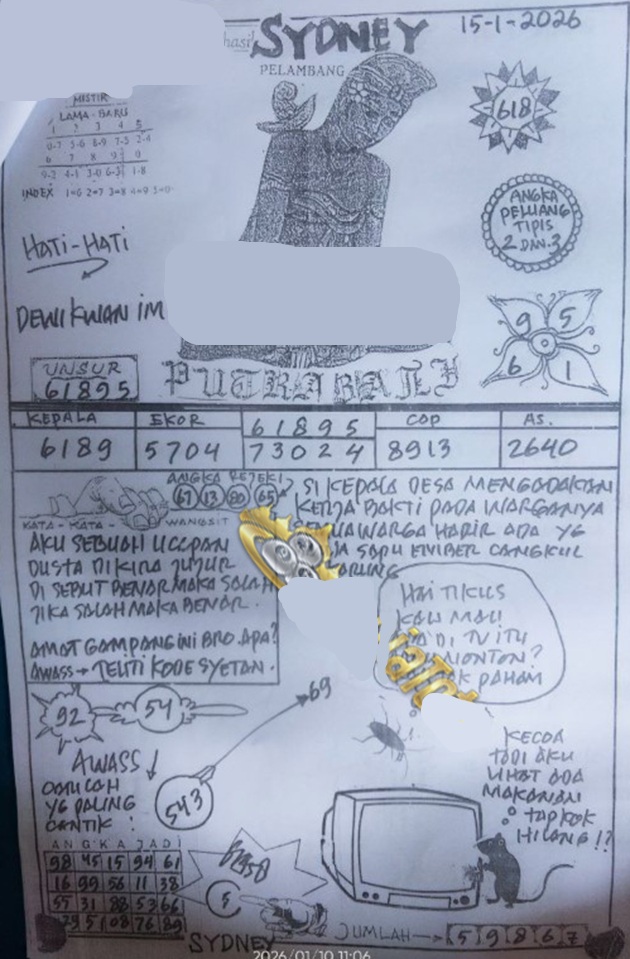 hasil SYDNEY
15-1-2026
PELAMBANG
MISTIK
LAMA - BARU
1 2 3 4 5
0-7 5-6 8-9 7-5 2-4
6 7 8 9 0
9-2 4-1 3-0 6-3 1-8
INDEX 1=6 2=7 3=8 4=9 5=0
618
ANGKA
PELUANG
TIPIS
2 DAN 3
HATI-HATI
DEWI KWAN IM
9 5
6 1
UNSUR
61895
PUTRA
KEPALA EKOR 61895 COP AS.
6189 5704 73024 8913 2640
ANGKA REJEKI
67 13 80 65
SI KEPALA DESA MENGADAKAN
KERJA BAKTI PADA WARGANYA
WARGA HADIR ADA YG
SAPU EMBER CANGKUL
KATA - KATA - WANGSIT
AKU SEBUAH UCAPAN
DUSTA DIKIRA JUJUR
DI SEBUT BENAR MAKA SALAH
JIKA SALAH MAKA BENAR.
AMAT GAMPANG INI BRO. APA?
AWASS → TELITI KODE SYETAN.
HAI TIKUS
KAU MAU
DI TV ITU
NONTON?
PAHAM
92
54
69
AWASS
YG PALING
CANTIK
543
KECOA
TADI AKU
LIHAT ADA
MAKANAN
TAPI KOK
HILANG !?
ANGKA JADI
98 45 15 94 61
16 99 56 11 38
55 31 88 53 66
79 51 08 76 89
5
SYDNEY
JUMLAH → 5 9 8 6 7
2026/01/10 11:06